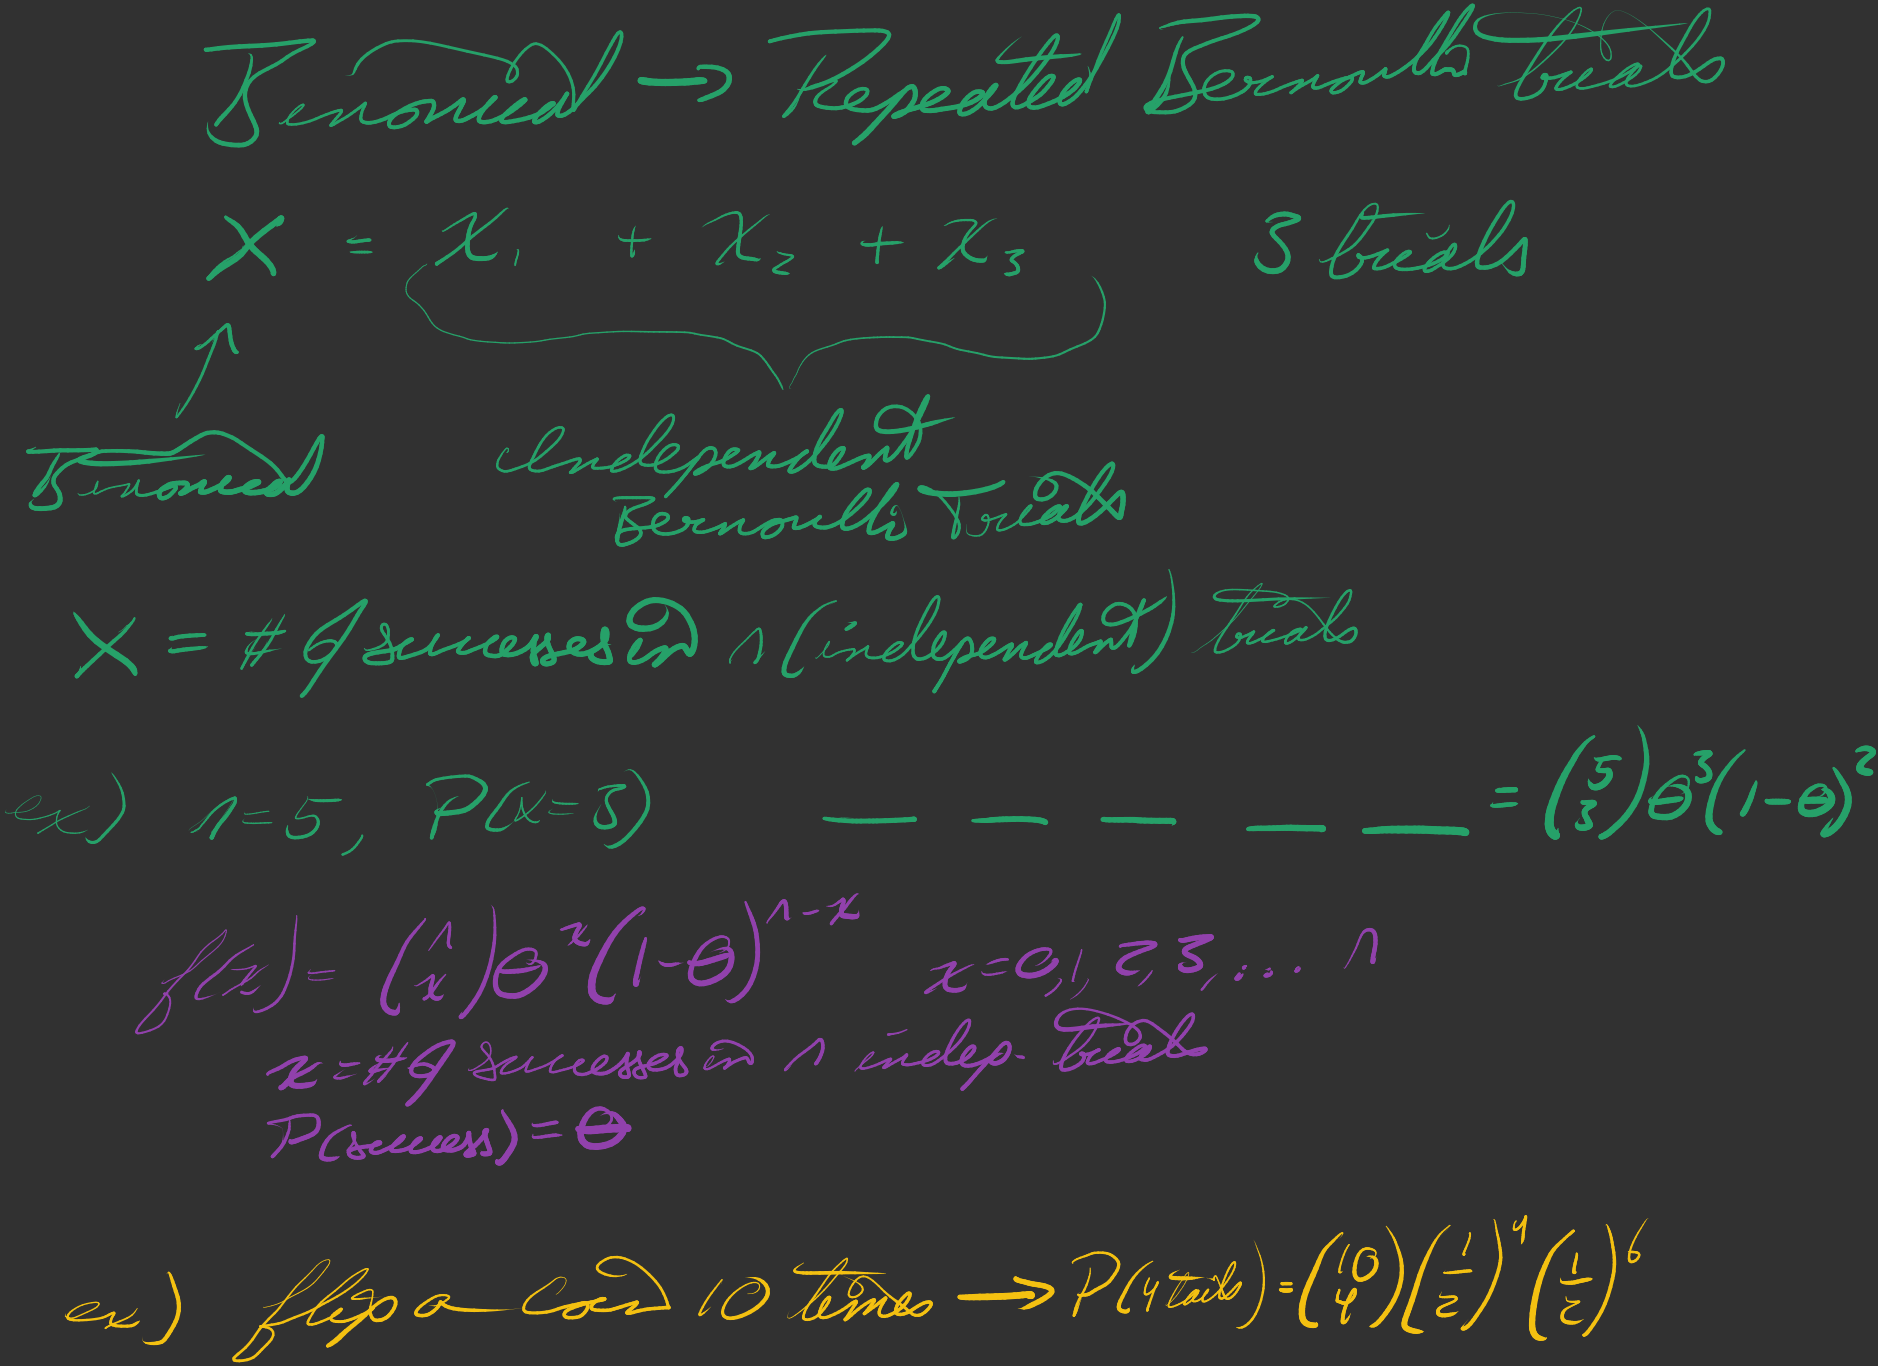 Binomial → Repeated Bernoulli trials
X = X₁ + X₂ + X₃ 3 trials
Binomial
Independent
Bernoulli Trials
X = # of successes in n (independent) trials
ex) n=5, P(X=3) __ __ __ __ __ = (5 3) θ³(1-θ)²
f(x) = (n x) θ^x (1-θ)^(n-x) x=0,1,2,3,... n
x = # of successes in n indep. trials
P(success) = θ
ex) flip a coin 10 times → P(4 tails) = (10 4) (1/2)^4 (1/2)^6